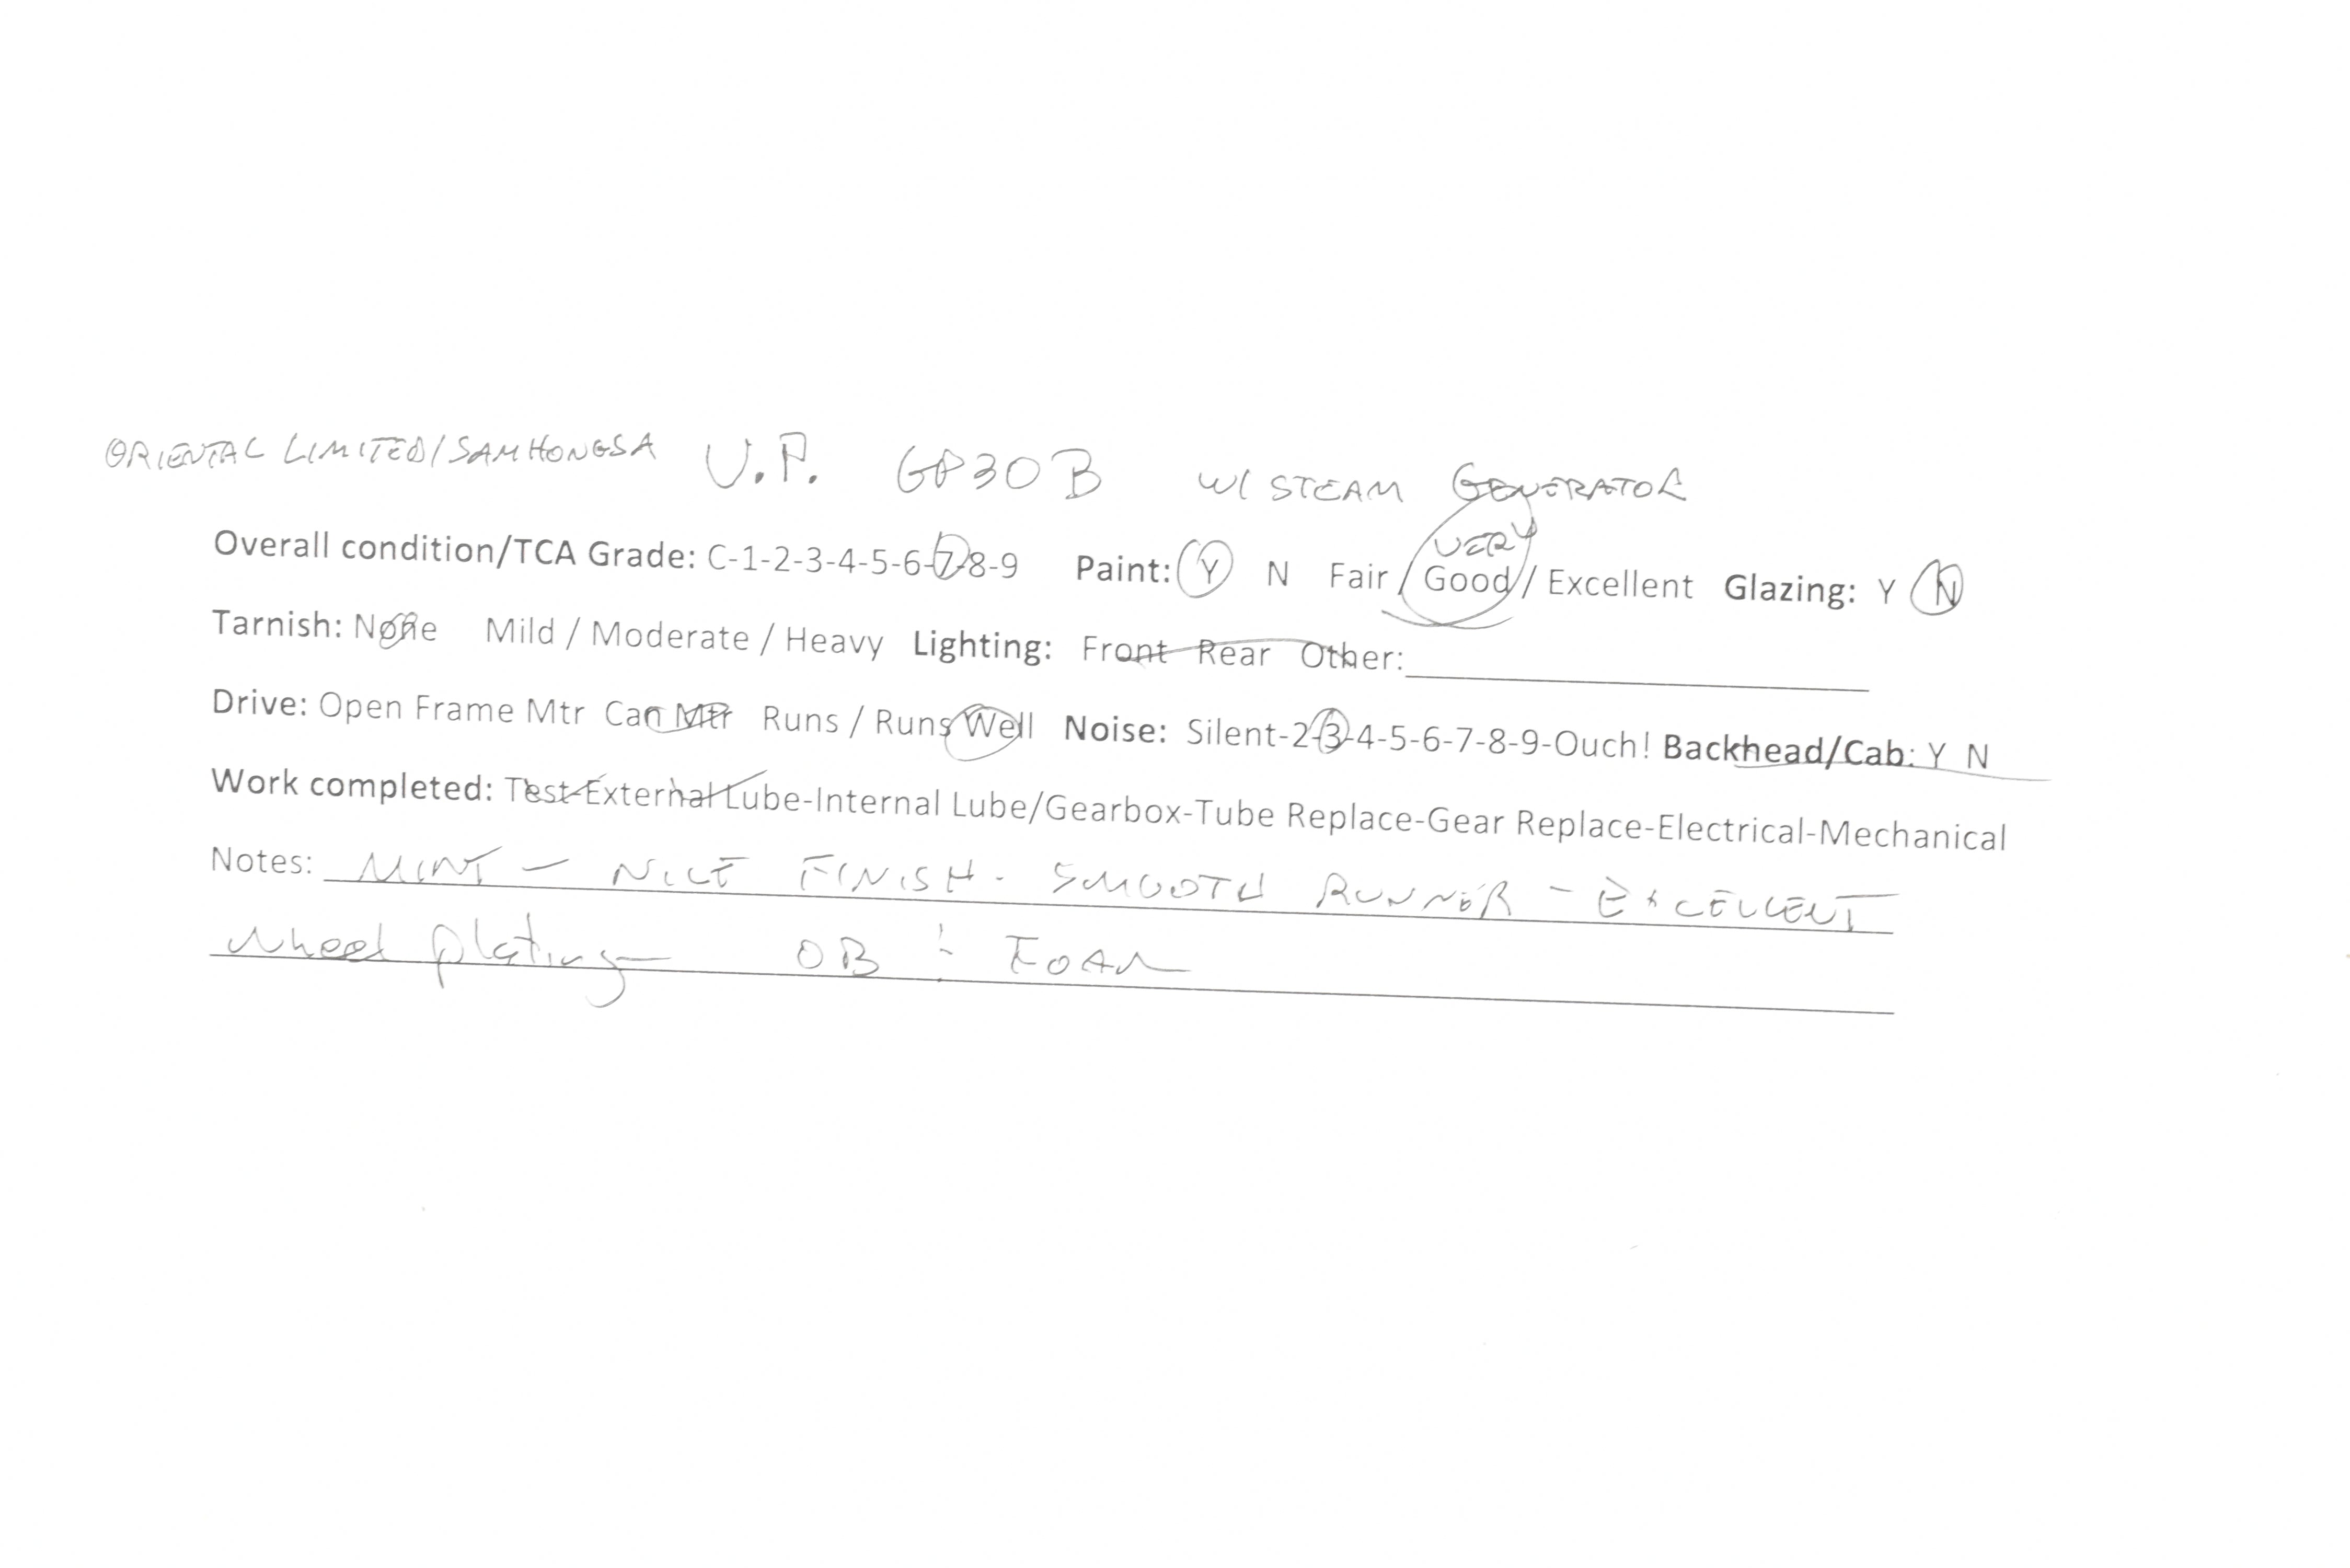 ORIENTAL LIMITED/SAMHONGSA U.P. GP30B W/ STEAM GENERATOR
VERY
Overall condition/TCA Grade: C-1-2-3-4-5-6-7-8-9 Paint: Y N Fair / Good / Excellent Glazing: Y N
Tarnish: None Mild / Moderate / Heavy Lighting: Front Rear Other:
Drive: Open Frame Mtr Can Mtr Runs / Runs Well Noise: Silent-2-3-4-5-6-7-8-9-Ouch! Backhead/Cab: Y N
Work completed: Test-External Lube-Internal Lube/Gearbox-Tube Replace-Gear Replace-Electrical-Mechanical
Notes: MINT - NICE FINISH. SMOOTH RUNNER - EXCELLENT
wheel plating OB : FOAM